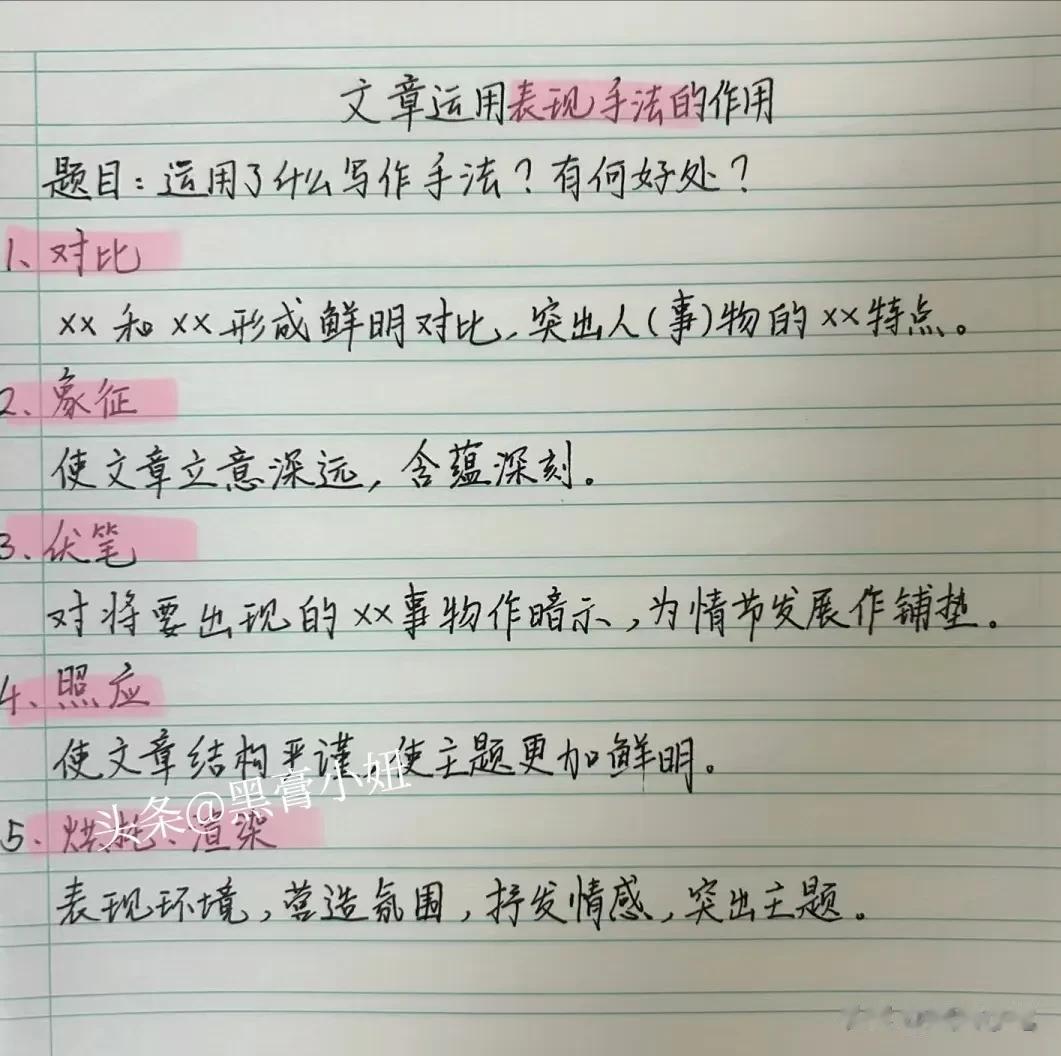 文章运用表现手法的作用
题目：运用了什么写作手法？有何好处？
1、对比
xx和xx形成鲜明对比，突出人(事)物的xx特点。
2、象征
使文章立意深远，含蕴深刻。
3、伏笔
对将要出现的xx事物作暗示，为情节发展作铺垫。
4、照应
使文章结构严谨，使主题更加鲜明。
头条@黑膏小妞
5、烘托、渲染
表现环境，营造氛围，抒发情感，突出主题。